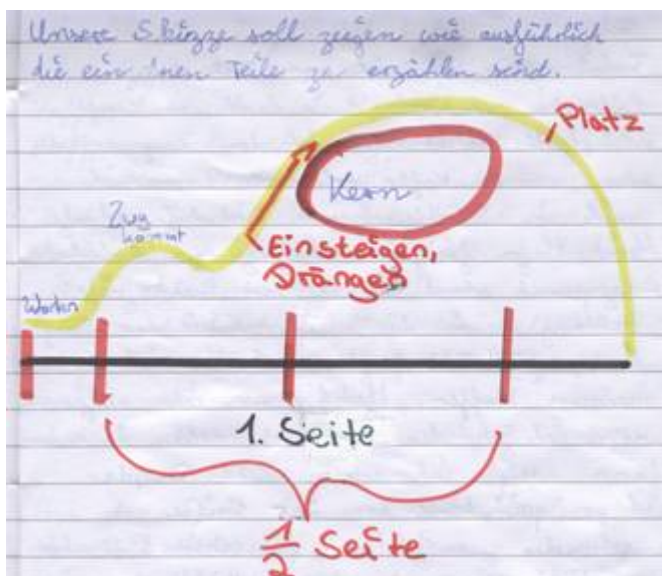 Unsere Skizze soll zeigen wie ausführlich
die ein nen Teile zu erzählen sind.
Platz
Kern
Zug
kommt
Einsteigen,
Drängen
Warten
1. Seite
1/2 Seite